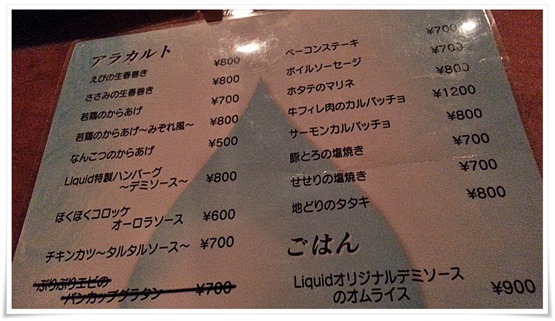 アラカルト
えびの生春巻き ¥800
ささみの生春巻き ¥800
若鶏のからあげ ¥700
若鶏のからあげ～みぞれ風～ ¥800
なんこつのからあげ ¥500
Liquid特製ハンバーグ
～デミソース～ ¥800
ほくほくコロッケ
オーロラソース ¥600
チキンカツ～タルタルソース～ ¥700
ぷりぷりエビの
パンカップグラタン ¥700
ベーコンステーキ ¥700
ボイルソーセージ ¥700
ホタテのマリネ ¥800
牛フィレ肉のカルパッチョ ¥1200
サーモンカルパッチョ ¥800
豚とろの塩焼き ¥700
せせりの塩焼き ¥700
地どりのタタキ ¥800
ごはん
Liquidオリジナルデミソース
のオムライス ¥900